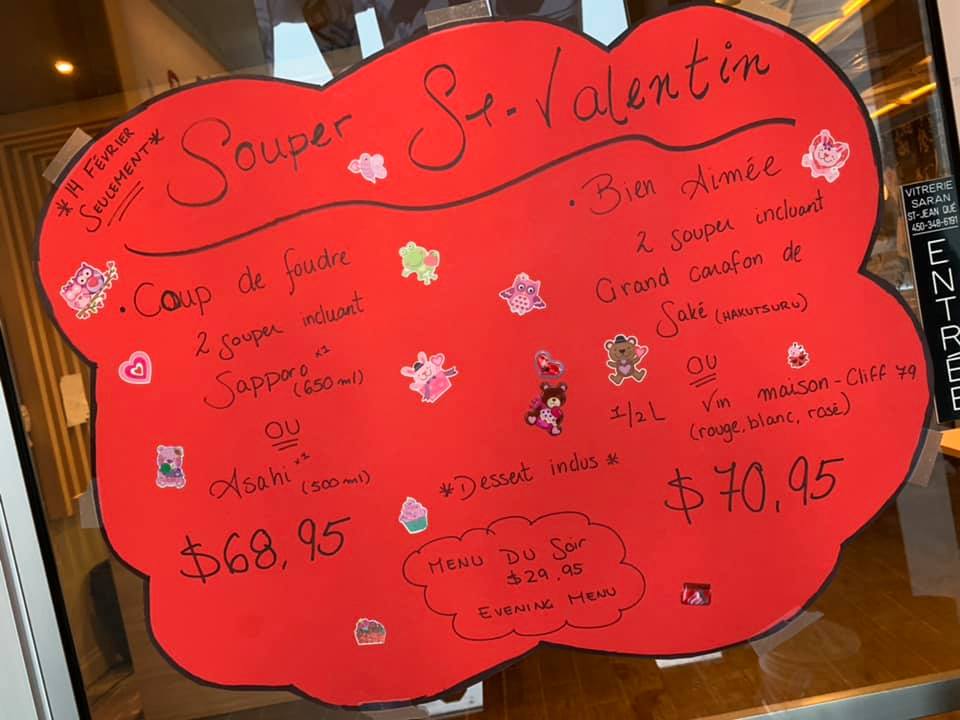 Souper St-Valentin
*14 FÉVRIER
SEULEMENT*
• Coup de foudre
2 souper incluant
Sapporo x1
(650 ml)
OU
Asahi x1 (500 ml)
$68,95
• Bien Aimée
2 souper incluant
Grand carafon de
Saké (HAKUTSURU)
OU
1/2 L Vin maison - Cliff 79
(rouge, blanc, rosé)
$70,95
*Dessert inclus*
MENU DU SOIR
$29.95
EVENING MENU
VITRERIE
SARAN
ST-JEAN QUÉ
450-348-6191
ENTRÉE